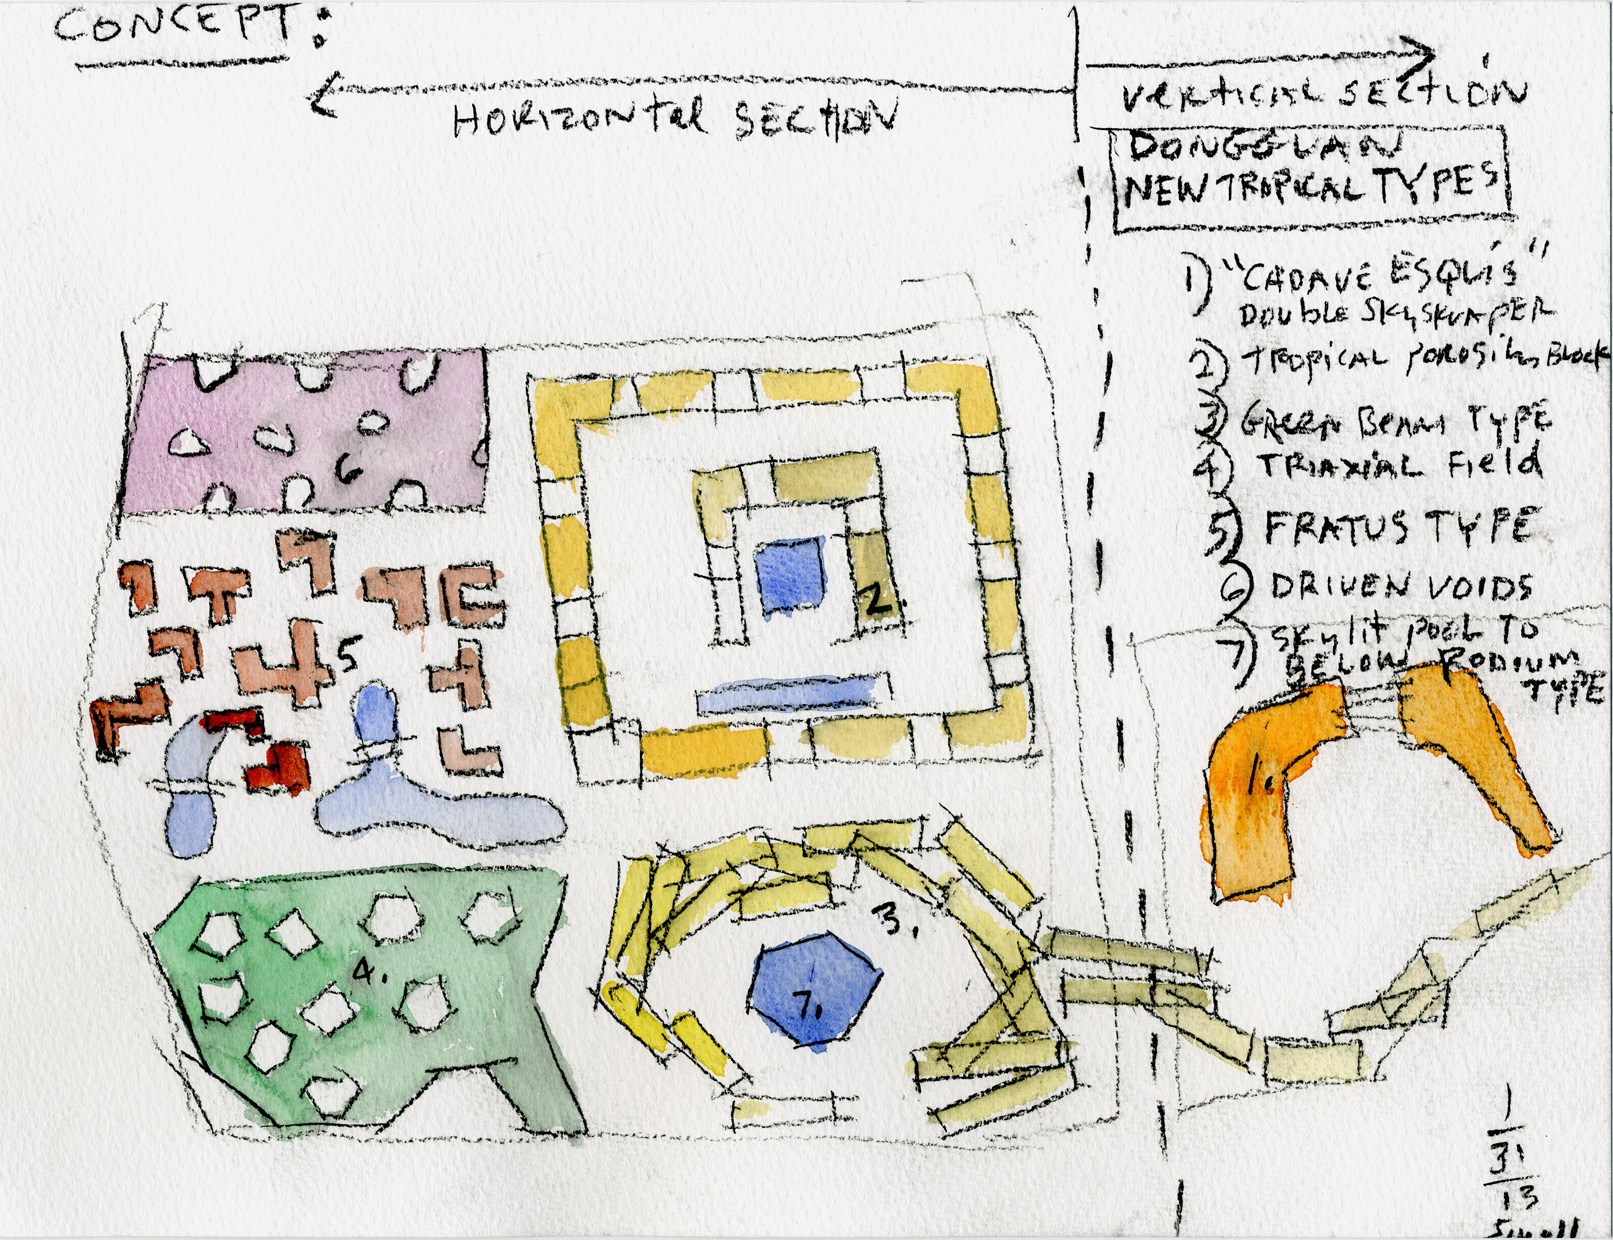 CONCEPT:
HORIZONTAL SECTION
VERTICAL SECTION
DONGGUAN
NEW TROPICAL TYPES
1) "CADAVE ESQUIS"
DOUBLE SKYSKRAPER
2) TROPICAL POROSITY BLOCK
3) GREEN BEAM TYPE
4) TRIAXIAL FIELD
5) FRATUS TYPE
6) DRIVEN VOIDS
7) SKYLIT POOL TO
BELOW PODIUM
TYPE
6
5
2.
1.
3.
4.
7.
1
31
13